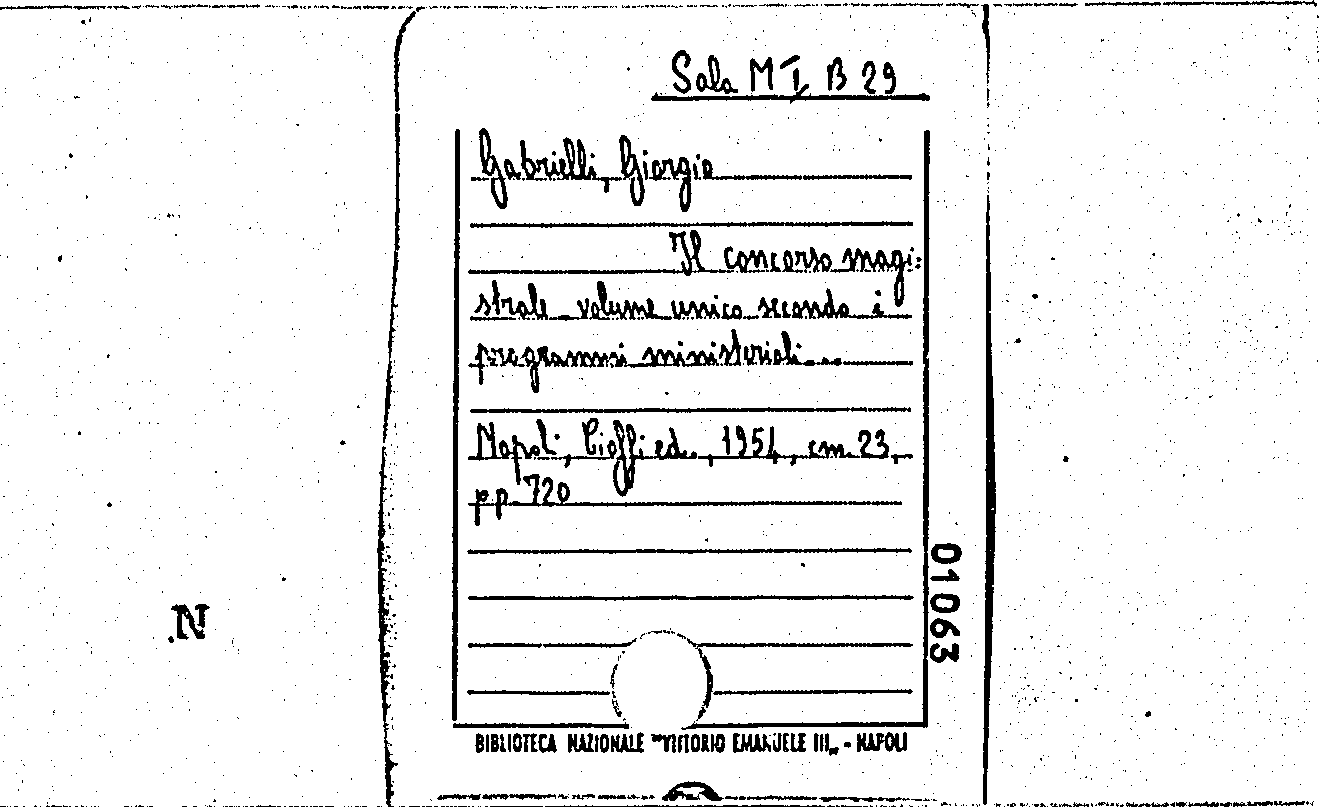 Sala MI B 29
Gabrielli, Giorgio
Il concorso magi:
strale volume unico secondo i
programmi ministeriali...
Napoli, Cioffi ed., 1954, cm. 23,
pp. 720
01063
N
BIBLIOTECA NAZIONALE "VITTORIO EMANUELE III„ - NAPOLI